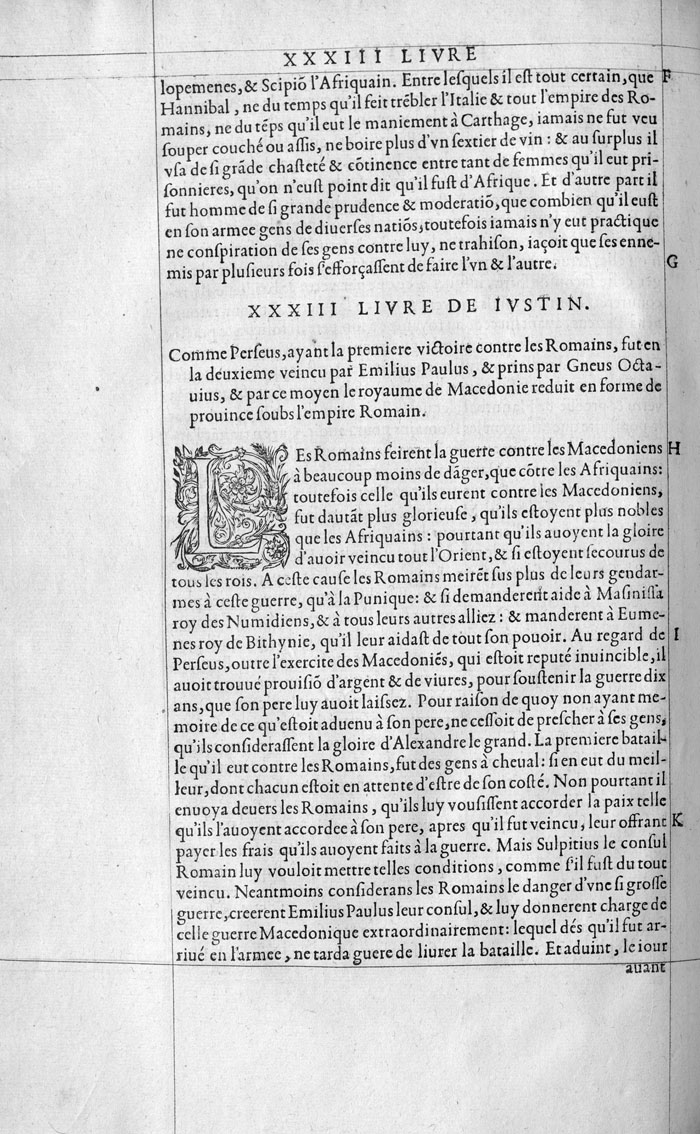 XXXIII LIVRE
lopemenes, & Scipiõ l'Afriquain. Entre leſquels il eſt tout certain, que F
Hannibal, ne du temps qu'il feit trẽbler l'Italie & tout l'empire des Ro-
mains, ne du tẽps qu'il eut le maniement à Carthage, iamais ne fut veu
ſouper couché ou aſſis, ne boire plus d'vn ſextier de vin : & au ſurplus il
vſa de ſi grãde chaſteté & cõtinence entre tant de femmes qu'il eut pri-
ſonnieres, qu'on n'euſt point dit qu'il fuſt d'Afrique. Et d'autre part il
fut homme de ſi grande prudence & moderatiõ, que combien qu'il euſt
en ſon armee gens de diuerſes natiõs, toutefois iamais n'y eut practique
ne conſpiration de ſes gens contre luy, ne trahiſon, iaçoit que ſes enne-
mis par pluſieurs fois ſ'efforçaſſent de faire l'vn & l'autre. G
XXXIII LIVRE DE IVSTIN.
Comme Perſeus, ayant la premiere victoire contre les Romains, fut en
la deuxieme veincu par Emilius Paulus, & prins par Gneus Octa-
uius, & par ce moyen le royaume de Macedonie reduit en forme de
prouince ſoubs l'empire Romain.
LEs Romains feirent la guerre contre les Macedoniens H
à beaucoup moins de dãger, que cõtre les Afriquains:
toutefois celle qu'ils eurent contre les Macedoniens,
fut dautãt plus glorieuſe, qu'ils eſtoyent plus nobles
que les Afriquains : pourtant qu'ils auoyent la gloire
d'auoir veincu tout l'Orient, & ſi eſtoyent ſecourus de
tous les rois. A ceſte cauſe les Romains meirẽt ſus plus de leurs gendar-
mes à ceſte guerre, qu'à la Punique: & ſi demanderẽt aide à Maſiniſſa
roy des Numidiens, & à tous leurs autres alliez : & manderent à Eume-
nes roy de Bithynie, qu'il leur aidaſt de tout ſon pouoir. Au regard de I
Perſeus, outre l'exercite des Macedoniẽs, qui eſtoit reputé inuincible, il
auoit trouué prouiſiõ d'argent & de viures, pour ſouſtenir la guerre dix
ans, que ſon pere luy auoit laiſſez. Pour raiſon de quoy non ayant me-
moire de ce qu'eſtoit aduenu à ſon pere, ne ceſſoit de preſcher à ſes gens,
qu'ils conſideraſſent la gloire d'Alexandre le grand. La premiere batail-
le qu'il eut contre les Romains, fut des gens à cheual: ſi en eut du meil-
leur, dont chacun eſtoit en attente d'eſtre de ſon coſté. Non pourtant il
enuoya deuers les Romains, qu'ils luy vouſiſſent accorder la paix telle
qu'ils l'auoyent accordee à ſon pere, apres qu'il fut veincu, leur offrant K
payer les frais qu'ils auoyent faits à la guerre. Mais Sulpitius le conſul
Romain luy vouloit mettre telles conditions, comme ſ'il fuſt du tout
veincu. Neantmoins conſiderans les Romains le danger d'vne ſi groſſe
guerre, creerent Emilius Paulus leur conſul, & luy donnerent charge de
celle guerre Macedonique extraordinairement: lequel dés qu'il fut ar-
riué en l'armee, ne tarda guere de liurer la bataille. Et aduint, le iour
auant